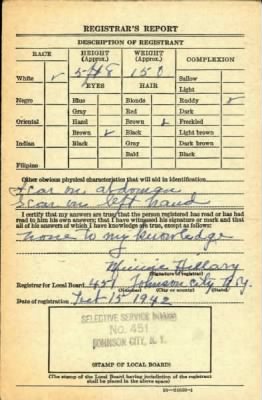 REGISTRAR'S REPORT
DESCRIPTION OF REGISTRANT
RACE HEIGHT (Approx.) WEIGHT (Approx.) COMPLEXION
White ✓ 5 ft 8 150 Sallow
EYES HAIR Light
Negro Blue Blonde Ruddy ✓
Gray Red Dark
Oriental Hazel Brown ✓ Freckled
Brown ✓ Black Light brown
Indian Black Gray Dark brown
Bald Black
Filipino
Other obvious physical characteristics that will aid in identification
Scar on abdomen
Scar on left hand
I certify that my answers are true; that the person registered has read or has had
read to him his own answers; that I have witnessed his signature or mark and that
all of his answers of which I have knowledge are true, except as follows:
none to my knowledge
Hillary
(Signature of registrar)
Registrar for Local Board 451 Johnson City N.Y.
(Number) (City or county) (State)
Date of registration Feb 15 1942
SELECTIVE SERVICE BOARD
No. 451
JOHNSON CITY, N. Y.
(STAMP OF LOCAL BOARD)
(The stamp of the Local Board having jurisdiction of the registrant
shall be placed in the above space)